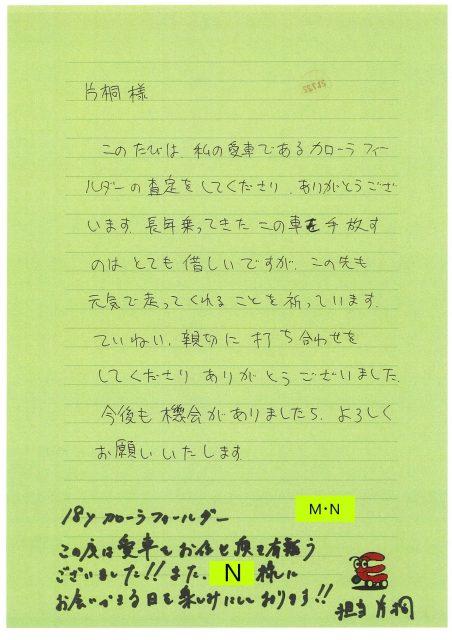 片桐様
このたびは、私の愛車であるカローラフィー
ルダーの査定をしてくださり、ありがとうござ
います。長年乗ってきたこの車を手放す
のはとても惜しいですが、この先も
元気で走ってくれることを祈っています。
ていねい、親切に打ち合わせを
してくださりありがとうございました。
今後も機会がありましたら、よろしく
お願いいたします。
18y カローラフィールダー
M・N
この度は愛車をお任せ頂き有難う
ございました!! また、N様に
お会いできる日を楽しみにしております!!
担当 片桐